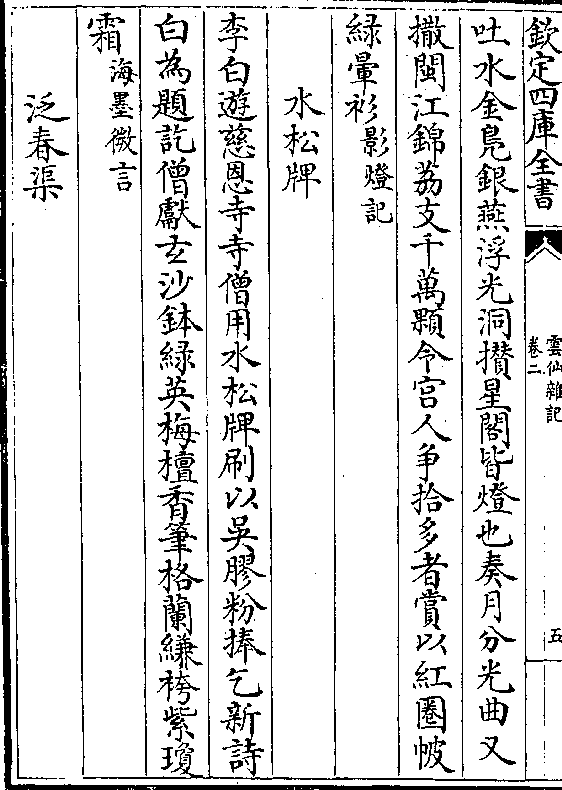 欽定四庫全書
雲仙雜記
卷二
五
吐水金鳬銀燕浮光洞攢星閣皆燈也奏月分光曲又
撒閩江錦荔支千萬顆令宫人争拾多者賞以紅圈帔
綠暈衫影燈記
水松牌
李白遊慈恩寺寺僧用水松牌刷以吳膠粉捧乞新詩
白為題訖僧獻玄沙鉢綠英梅檀香筆格蘭縑袴紫瓊
霜海墨微言
泛春渠